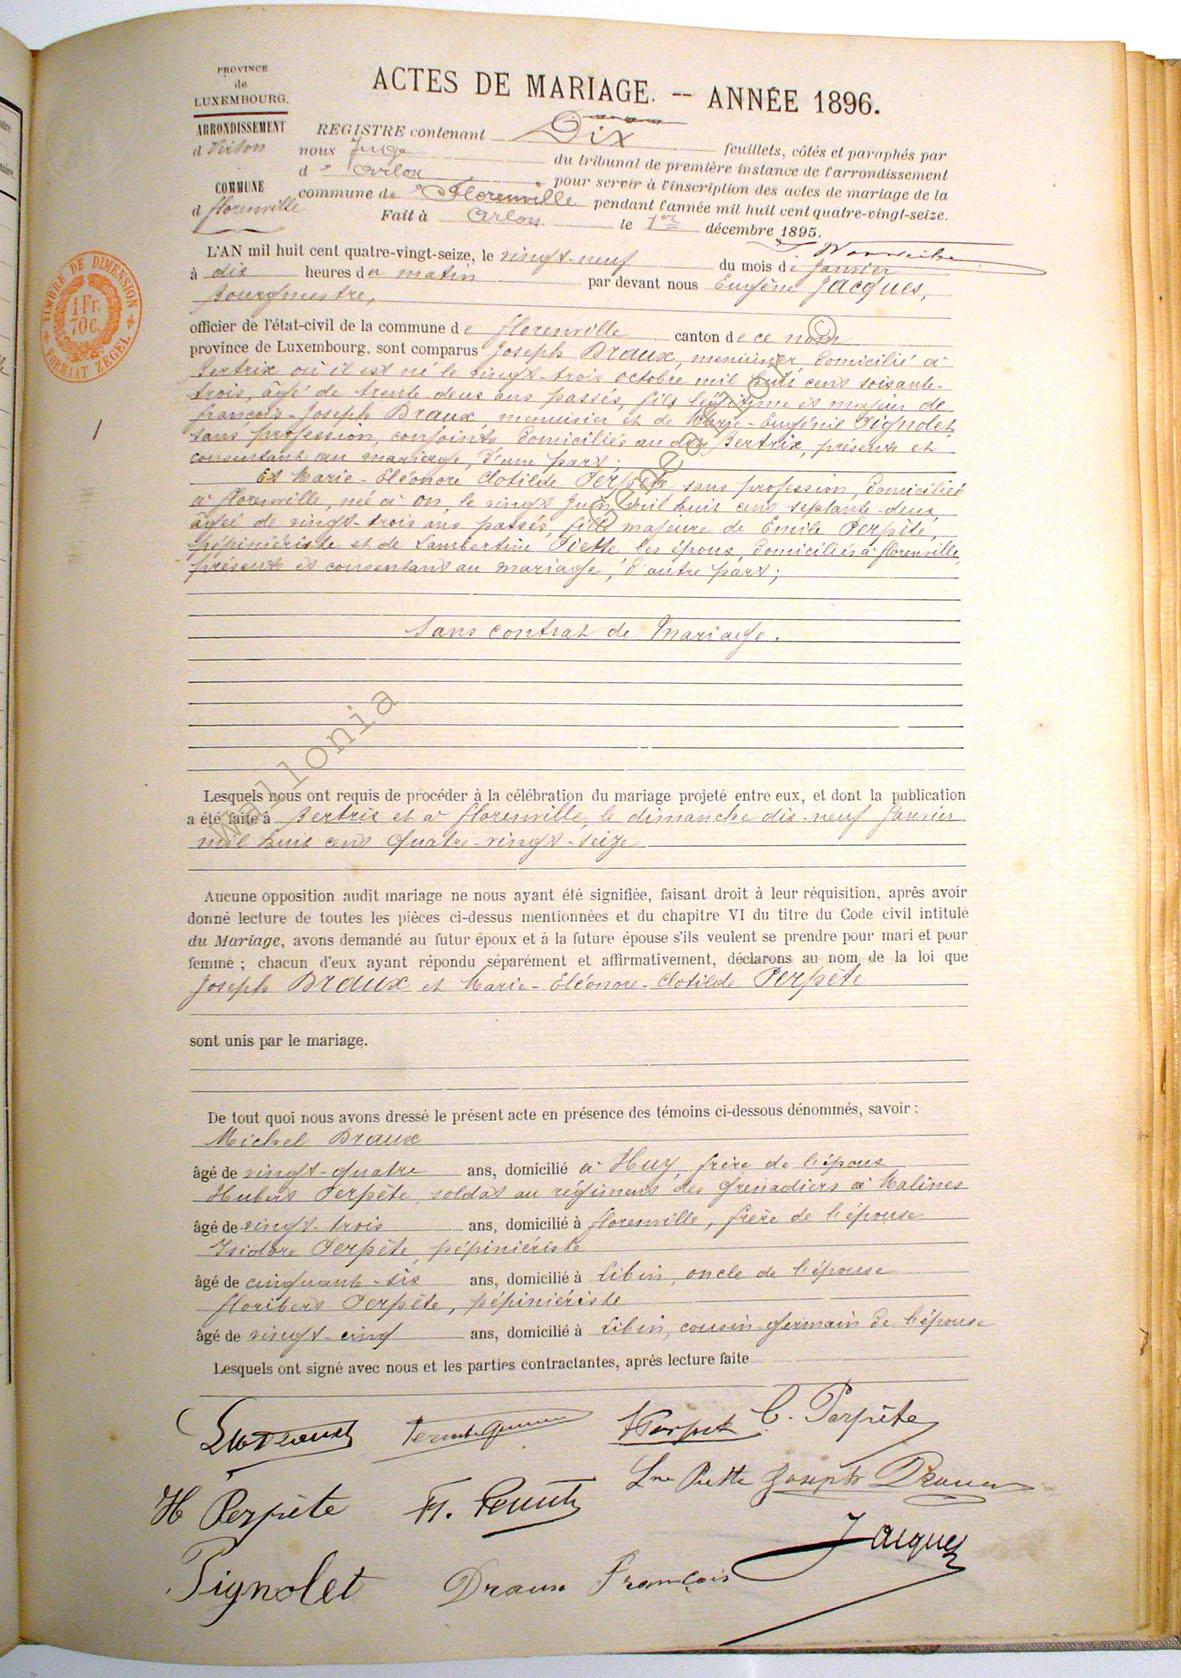 PROVINCE
de
LUXEMBOURG.
ARRONDISSEMENT
d Virton
COMMUNE
d florenville
ACTES DE MARIAGE. -- ANNÉE 1896.
REGISTRE contenant Dix feuillets, côtés et paraphés par
nous Juge du tribunal de première instance de l'arrondissement
d' Arlon pour servir à l'inscription des actes de mariage de la
commune de Florenville pendant l'année mil huit cent quatre-vingt-seize.
Fait à Arlon le 1er décembre 1895.
TIMBRE DE DIMENSION
1 Fr.
70 c.
FORMAAT ZEGEL
L'AN mil huit cent quatre-vingt-seize, le vingt-neuf du mois de Janvier
à dix heures du matin par devant nous Eugène Jacques,
bourgmestre,
officier de l'état-civil de la commune de florenville canton de ce nom
province de Luxembourg, sont comparus Joseph Draux, menuisier, domicilié à
Bertrix où il est né le vingt-trois octobre mil huit cent soixante-
trois, âgé de trente-deux ans passés, fils légitime et majeur de
françois-Joseph Draux menuisier et de Marie-Eugénie Pignolet,
sans profession, conjoints domiciliés au dit Bertrix, présents et
consentant au mariage, d'une part;
Et Marie-Eléonore Clotilde Perpète sans profession, domiciliée
à florenville, née à On, le vingt Juin mil huit cent septante-deux,
âgée de vingt-trois ans passés, fille majeure de Emile Perpète,
pépiniériste et de Lambertine Piette les époux, domiciliés à florenville,
présents et consentant au mariage, d'autre part;
Sans contrat de Mariage.
Wallonia
Lesquels nous ont requis de procéder à la célébration du mariage projeté entre eux, et dont la publication
a été faite à Bertrix et à florenville, le dimanche dix-neuf Janvier
mil huit cent quatre-vingt-seize
Aucune opposition audit mariage ne nous ayant été signifiée, faisant droit à leur réquisition, après avoir
donné lecture de toutes les pièces ci-dessus mentionnées et du chapitre VI du titre du Code civil intitulé
du Mariage, avons demandé au futur époux et à la future épouse s'ils veulent se prendre pour mari et pour
femme ; chacun d'eux ayant répondu séparément et affirmativement, déclarons au nom de la loi que
Joseph Draux et Marie-Eléonore-Clotilde Perpète
sont unis par le mariage.
De tout quoi nous avons dressé le présent acte en présence des témoins ci-dessous dénommés, savoir :
Michel Draux
âgé de vingt-quatre ans, domicilié à Huy, frère de l'époux
Hubert Perpète, soldat au régiment des Grenadiers à Malines
âgé de vingt-trois ans, domicilié à florenville, frère de l'épouse
Isidore Perpète, pépiniériste
âgé de cinquante-six ans, domicilié à Libin, oncle de l'épouse
floribert Perpète, pépiniériste
âgé de vingt-cinq ans, domicilié à Libin, cousin-germain de l'épouse
Lesquels ont signé avec nous et les parties contractantes, après lecture faite
C. Perpète
Lne Piette Joseph Draux
H Perpète
Jacques
Pignolet Draux François